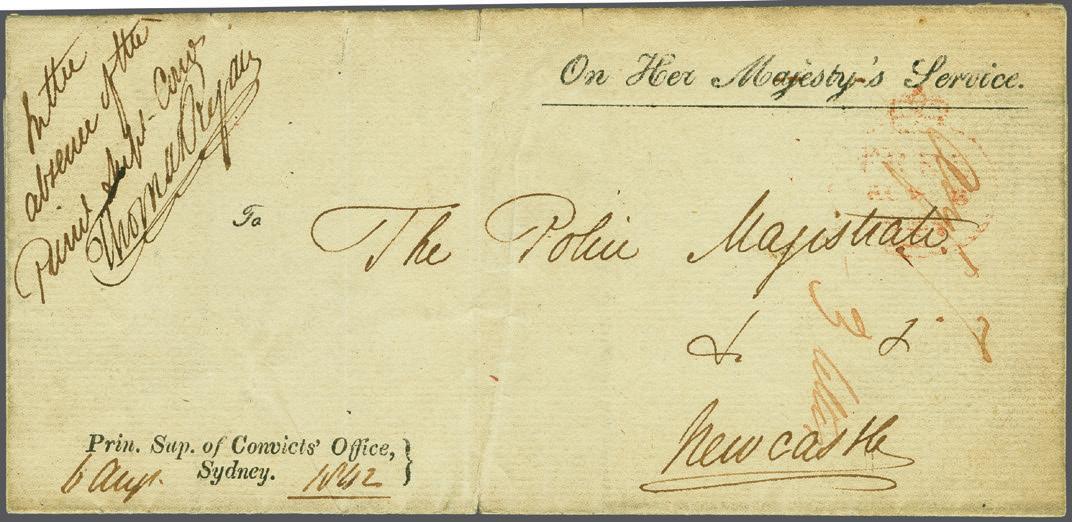 In the
absence of the
Princl Supt Conv
Thomas Ryan
On Her Majesty's Service.
To
The Police Magistrate
& &
Newcastle
Prin. Sup. of Convicts' Office,
6 Augt. Sydney. 1842
3